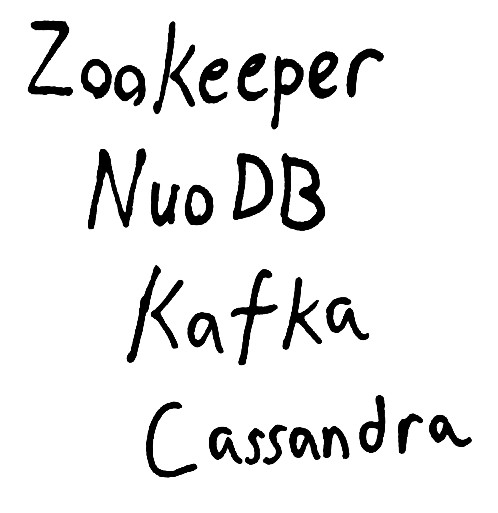 Zookeeper
NuoDB
Kafka
Cassandra